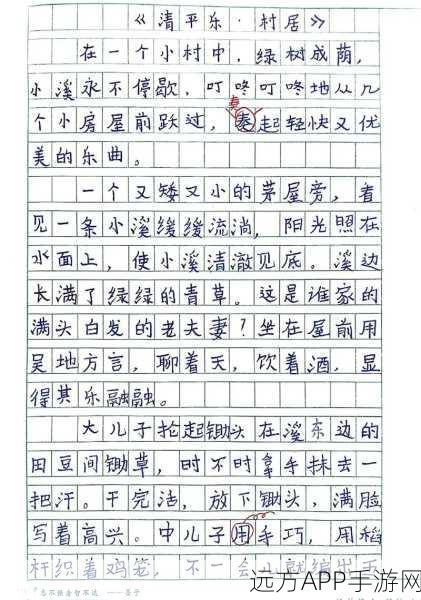 《清平乐·村居》
在一个小村中，绿树成荫，
小溪永不停歇，叮咚叮咚地从几
个小房屋前跃过，奏起轻快又优
美的乐曲。
一个又矮又小的茅屋旁，看
见一条小溪缓缓流淌，阳光照在
水面上，使小溪清澈见底。溪边
长满了绿绿的青草。这是谁家的
满头白发的老夫妻？坐在屋前用
吴地方言，聊着天，饮着酒，显
得其乐融融。
大儿子抡起锄头在溪东边的
田豆间锄草，时不时拿手抹去一
把汗。干完活，放下锄头，满脸
写着高兴。中儿子用手巧，用稻
杆织着鸡笼，不一会儿就编出
远方APP手游网